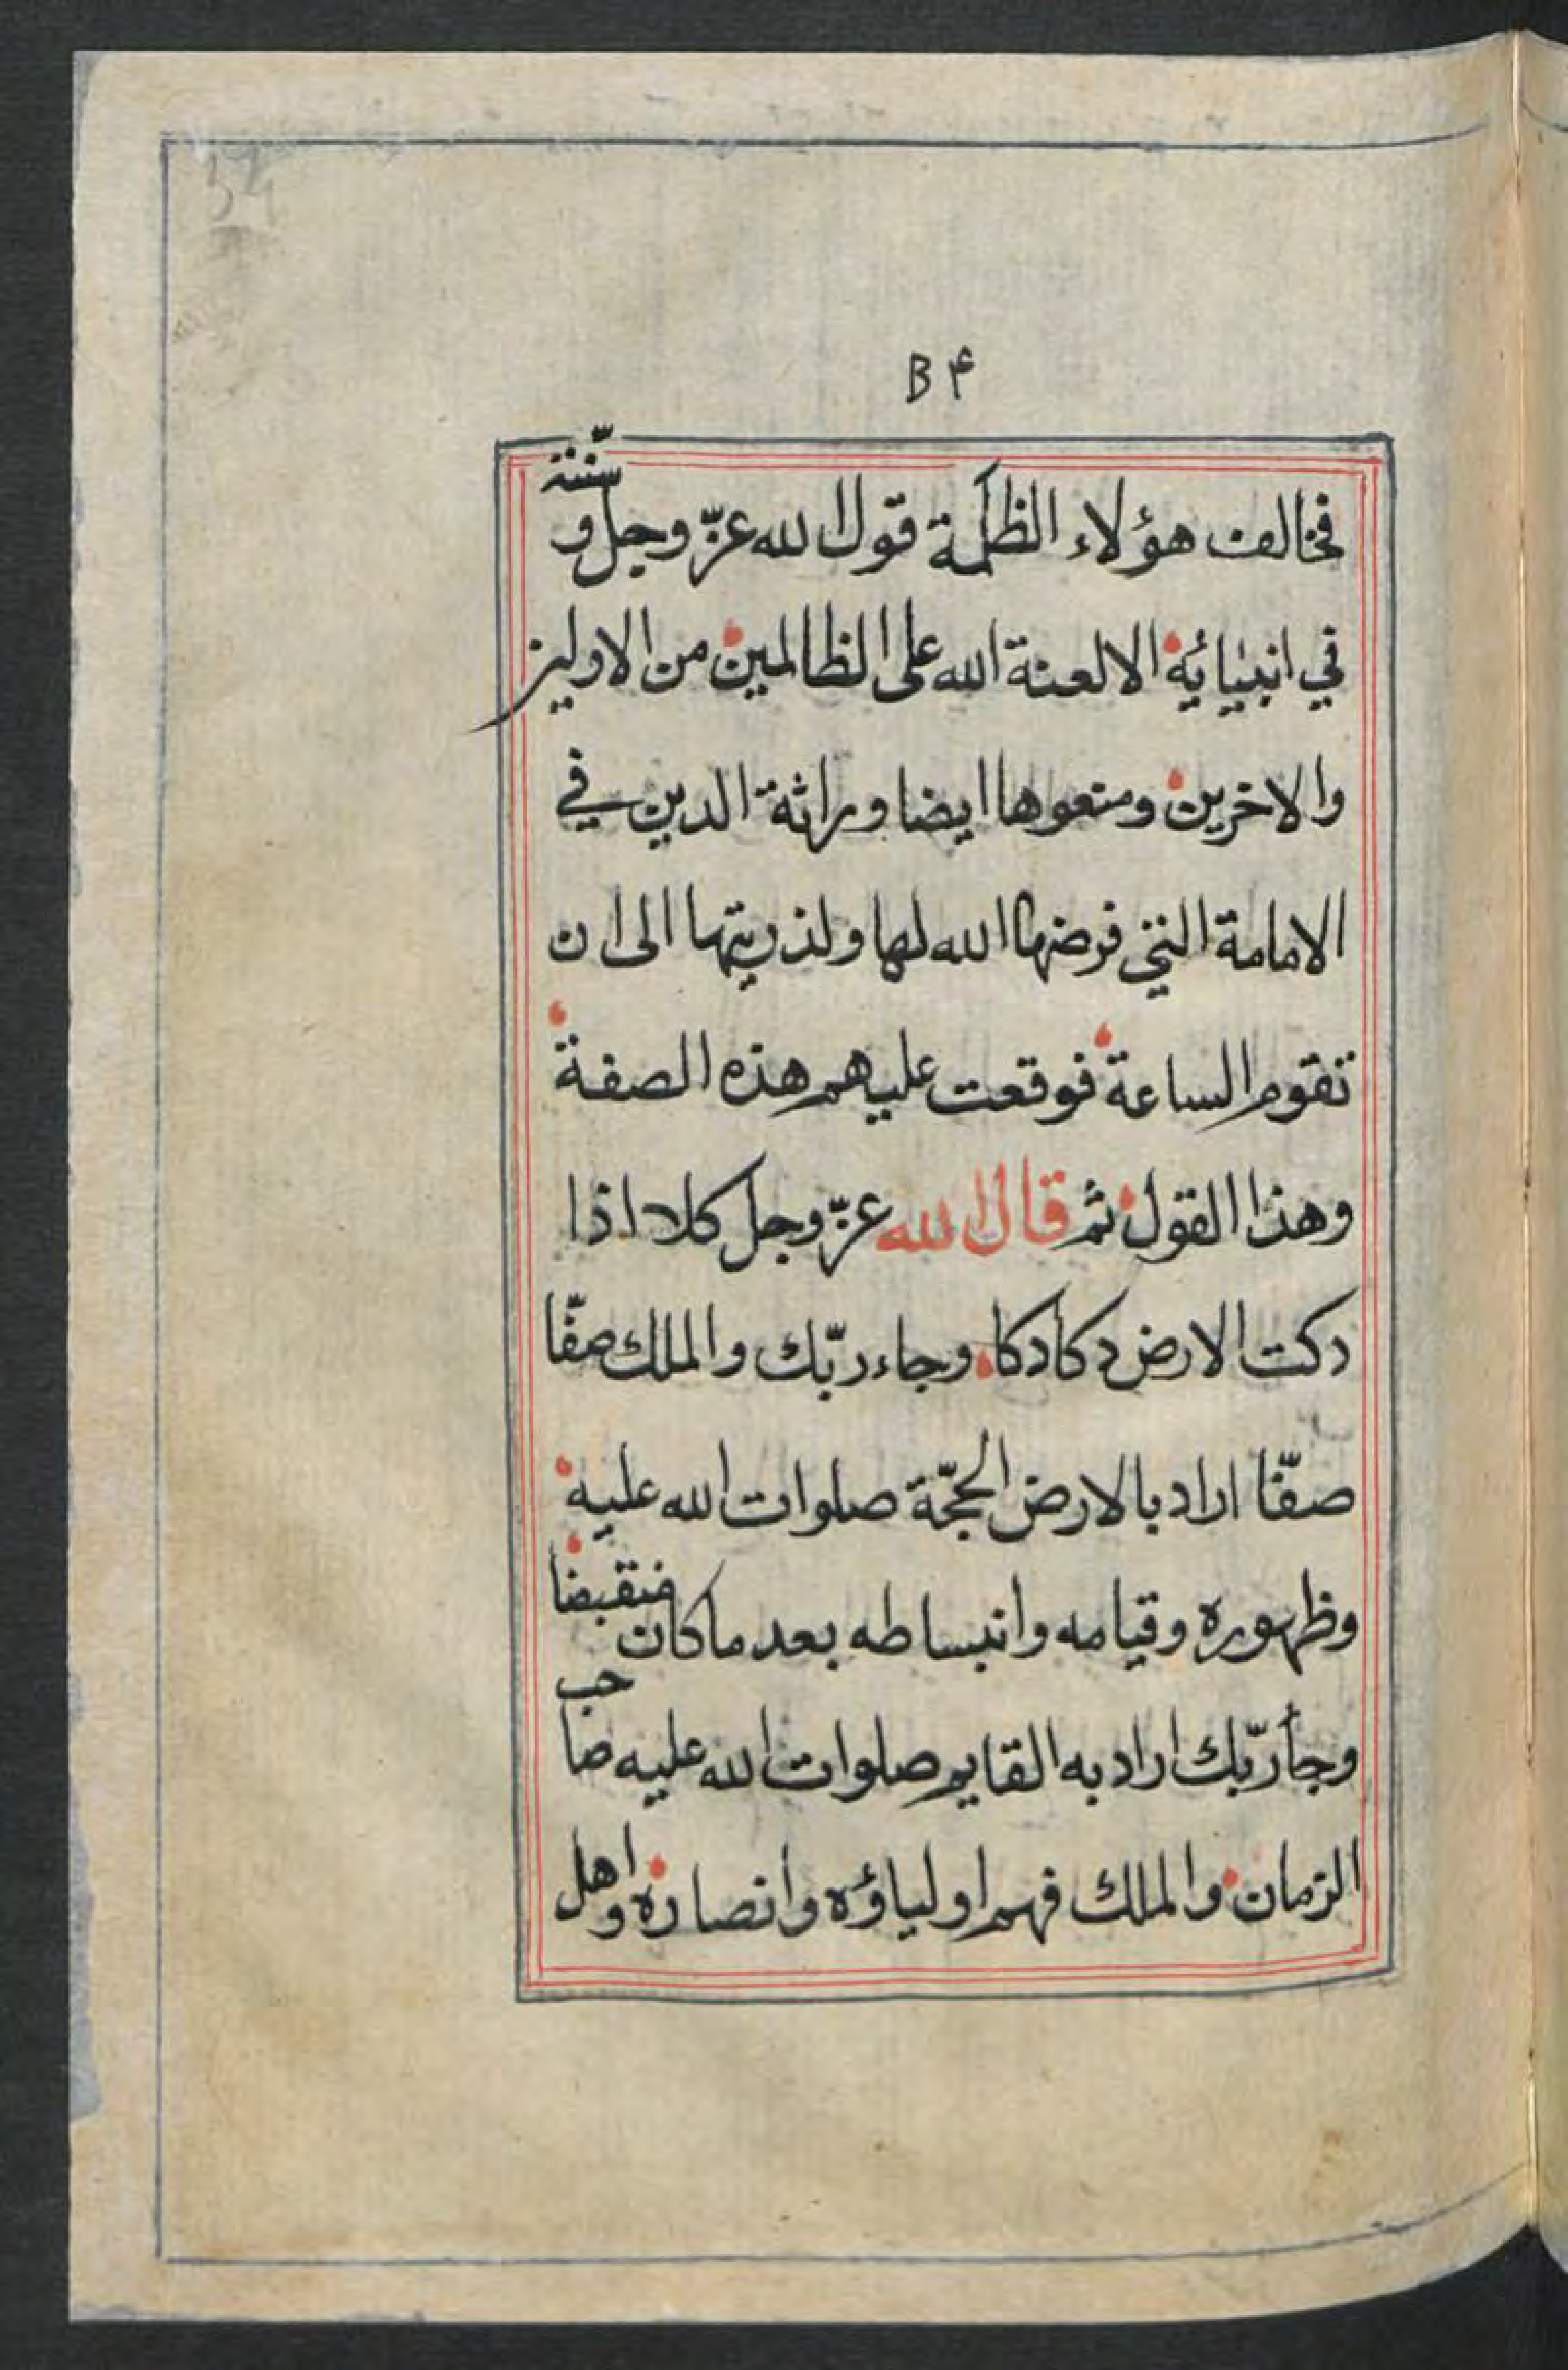 B ۴
فخالف هؤلاء الظلمة قول الله عزّ وجل وسنّته
في انبيائه الا لعنة الله على الظالمين من الاولين
والاخرين ومنعوها ايضا وراثة الدين في
الامامة التي فرضها الله لها ولذريتها الى ان
تقوم الساعة فوقعت عليهم هذه الصفة
وهذا القول ثم قال الله عزّ وجل كلا اذا
دكت الارض دكا دكا وجاء ربّك والملك صفّا
صفّا اراد بالارض الحجّة صلوات الله عليه
وظهوره وقيامه وانبساطه بعد ما كان منقبضا
وجأ ربّك اراد به القايم صلوات الله عليه صاحب
الزمان والملك فهم اولياؤه وانصاره واهل